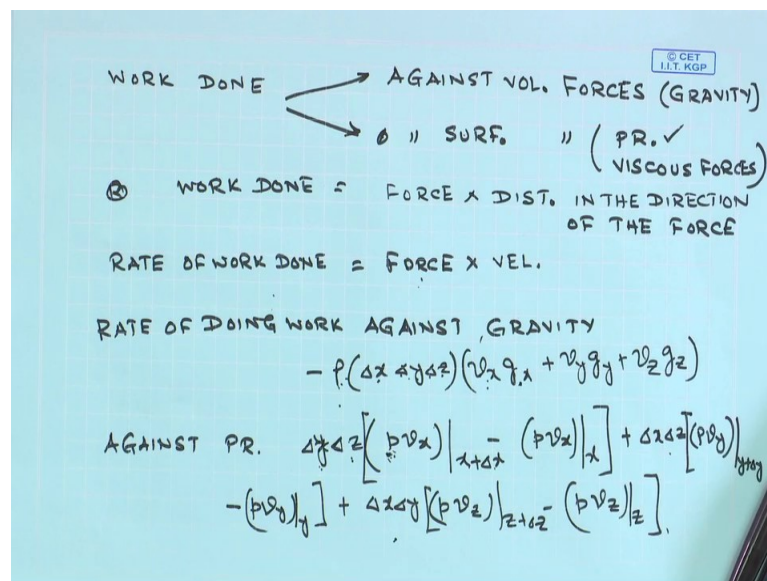 © CET
I.I.T. KGP
WORK DONE
AGAINST VOL. FORCES (GRAVITY)
〃 SURF. 〃 (PR. ✓
VISCOUS FORCES)
WORK DONE = FORCE x DIST. IN THE DIRECTION
OF THE FORCE
RATE OF WORK DONE = FORCE x VEL.
RATE OF DOING WORK AGAINST GRAVITY
- ρ(Δx Δy Δz)(v_x g_x + v_y g_y + v_z g_z)
AGAINST PR. Δy Δz[(pv_x)|_{x+Δx} - (pv_x)|_x] + Δx Δz[(pv_y)|_{y+Δy}
- (pv_y)|_y] + Δx Δy[(pv_z)|_{z+Δz} - (pv_z)|_z].